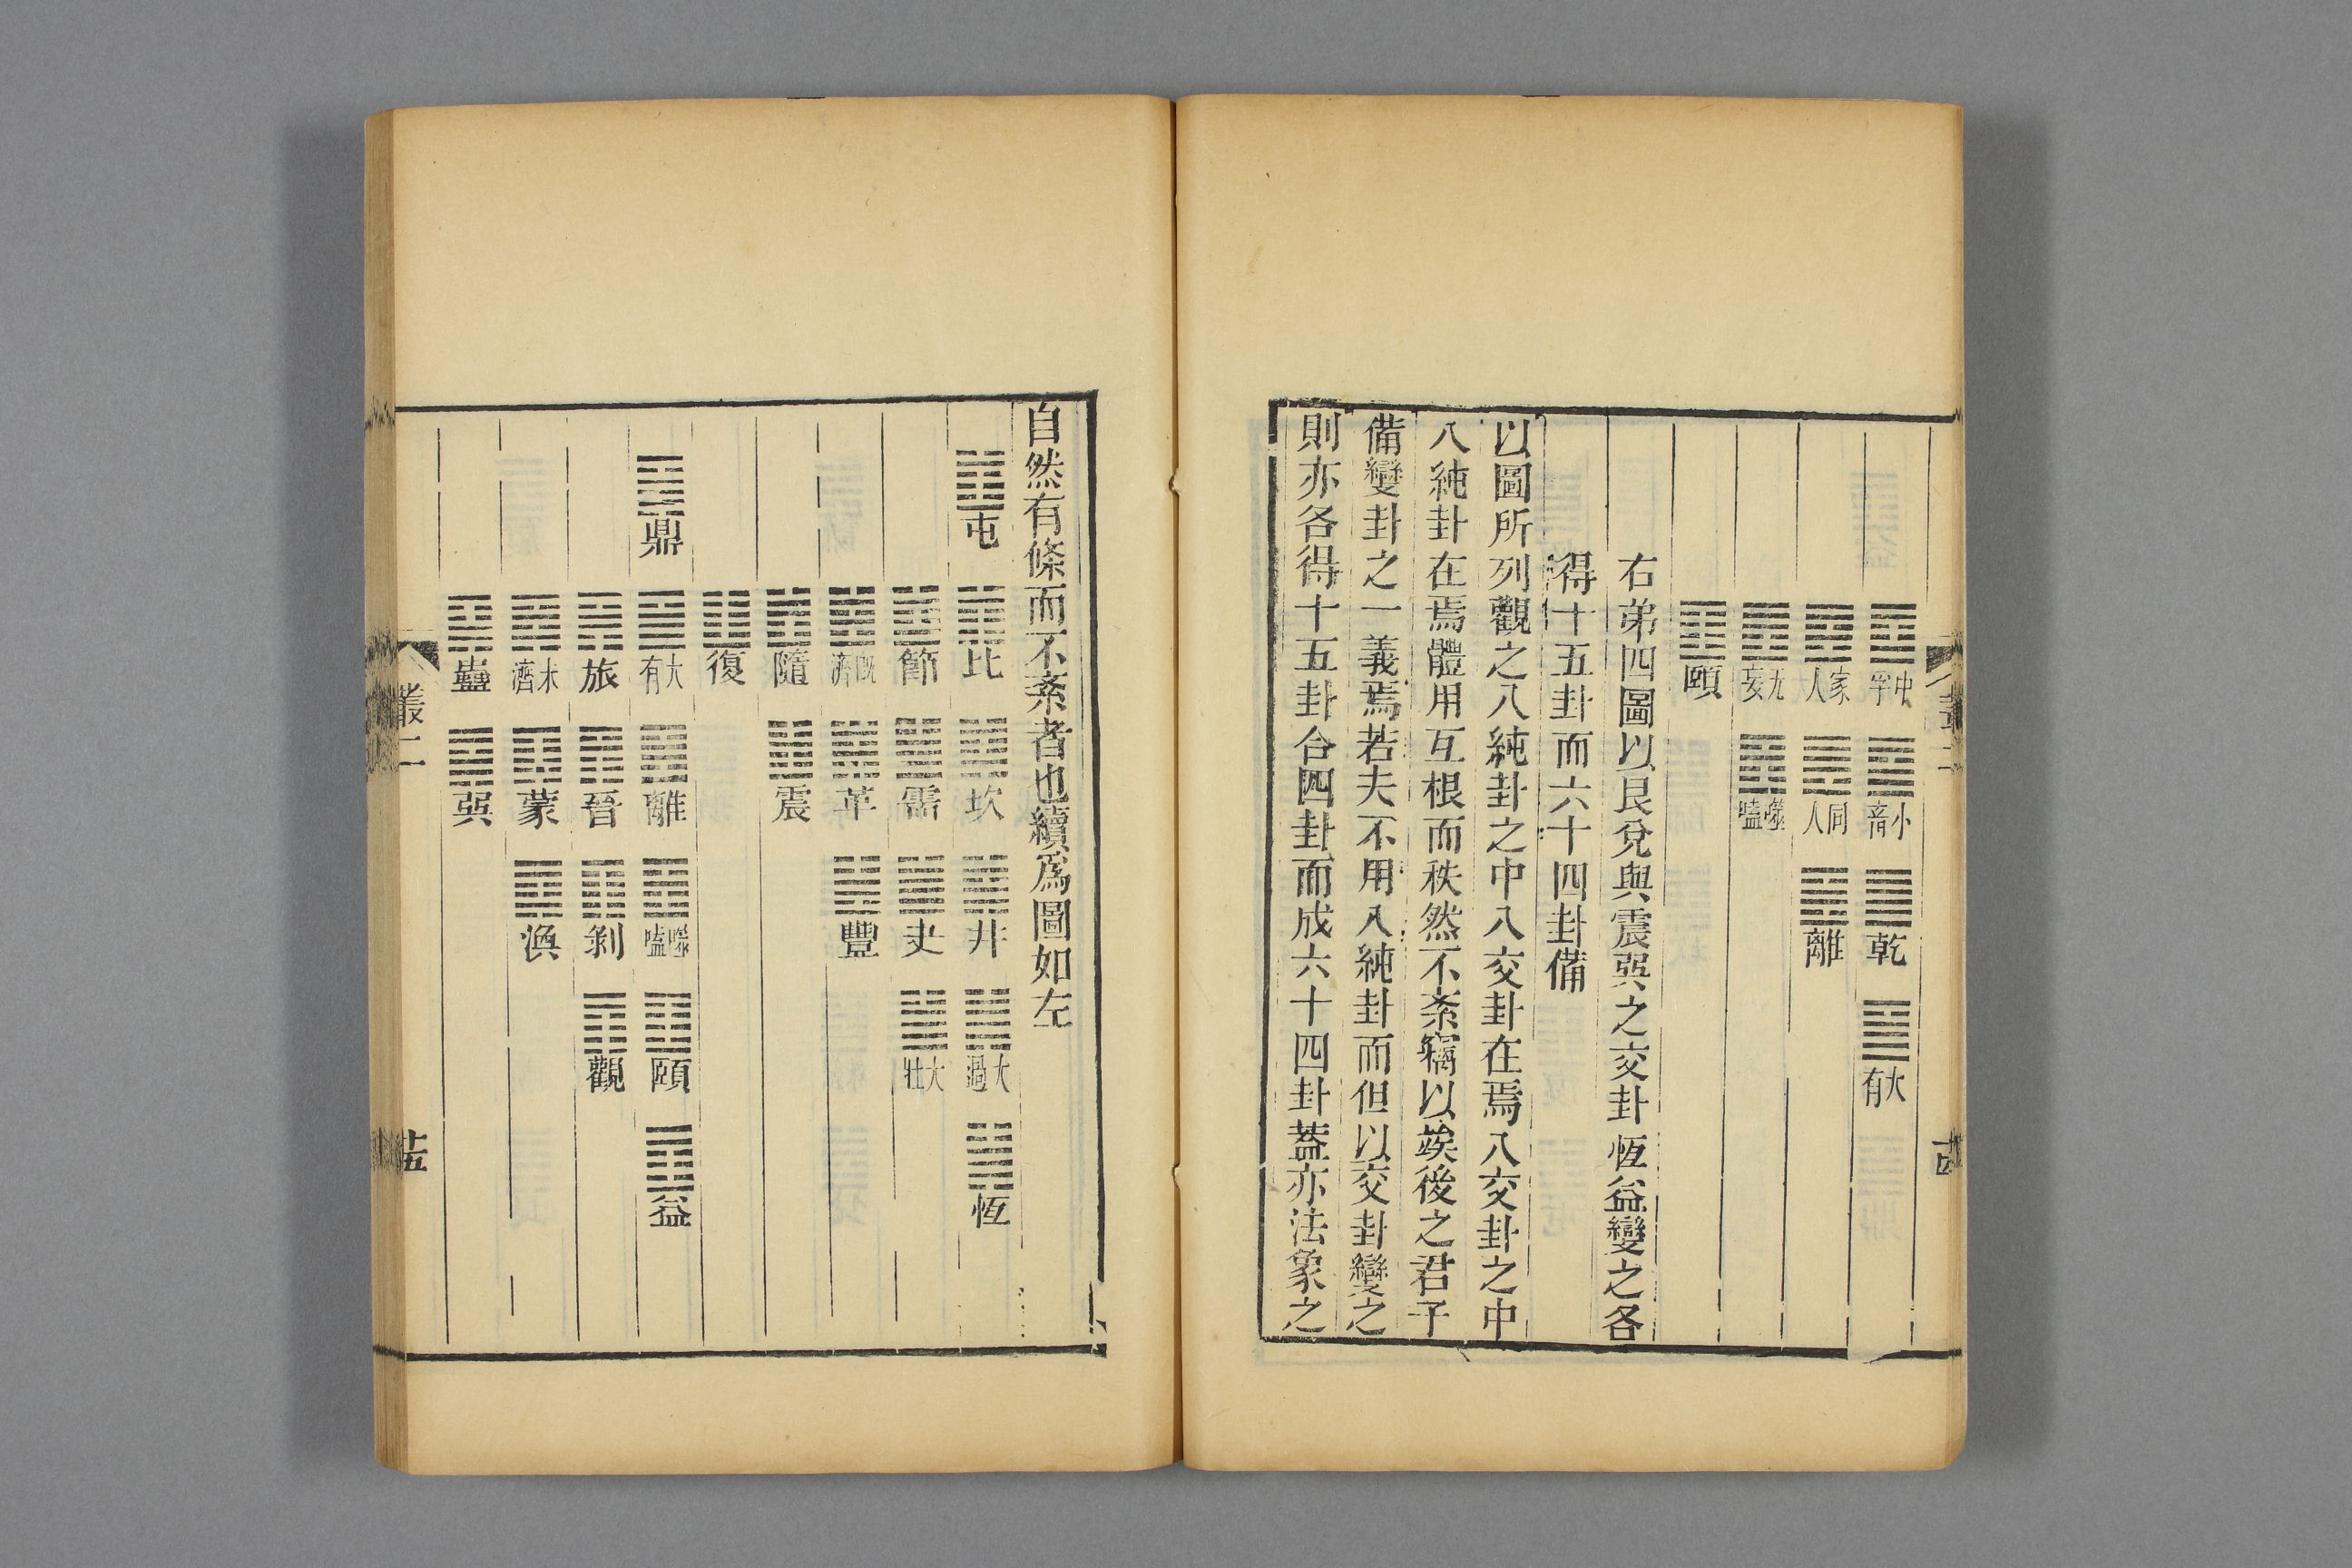 中孚 小畜 乾 大有
家人 同人 離
无妄 噬嗑
頤
右第四圖以艮兌與震巽之交卦恆益變之各
得十五卦而六十四卦備
以圖所列觀之八純卦之中八交卦在焉八交卦之中
八純卦在焉體用互根而秩然不紊竊以竢後之君子
備變卦之一義焉若夫不用八純卦而但以交卦變之
則亦各得十五卦合四卦而成六十四卦蓋亦法象之
自然有條而不紊者也續爲圖如左
屯 比 坎 井 大過 恆
節 需 夬 大壯
旣濟 革 豐
隨 震
復
鼎 大有 離 噬嗑 頤 益
旅 晉 剝 觀
未濟 蒙 渙
蠱 巽
叢二